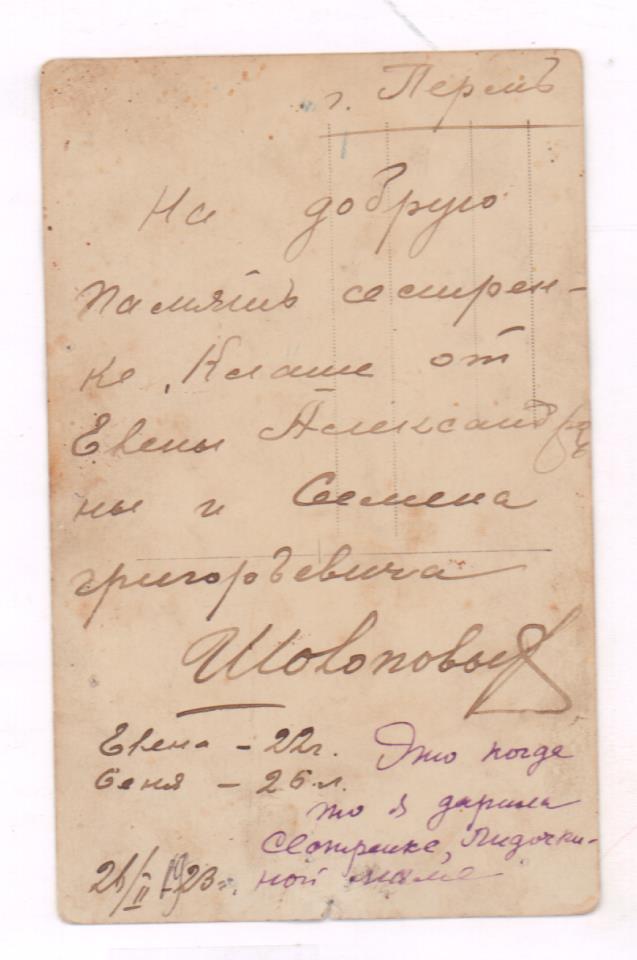 г. Пермь
На добрую
память сестрен-
ке, Клаше от
Евены Александр
ны и Семена
григорьевича
Евена - 22 г.
Сеня - 26 л.
Это когда
то я дарила
сестренке, Лидочки-
ной маме